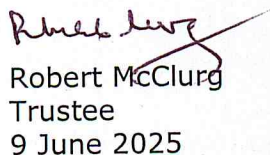 Robert McClurg
Trustee
9 June 2025